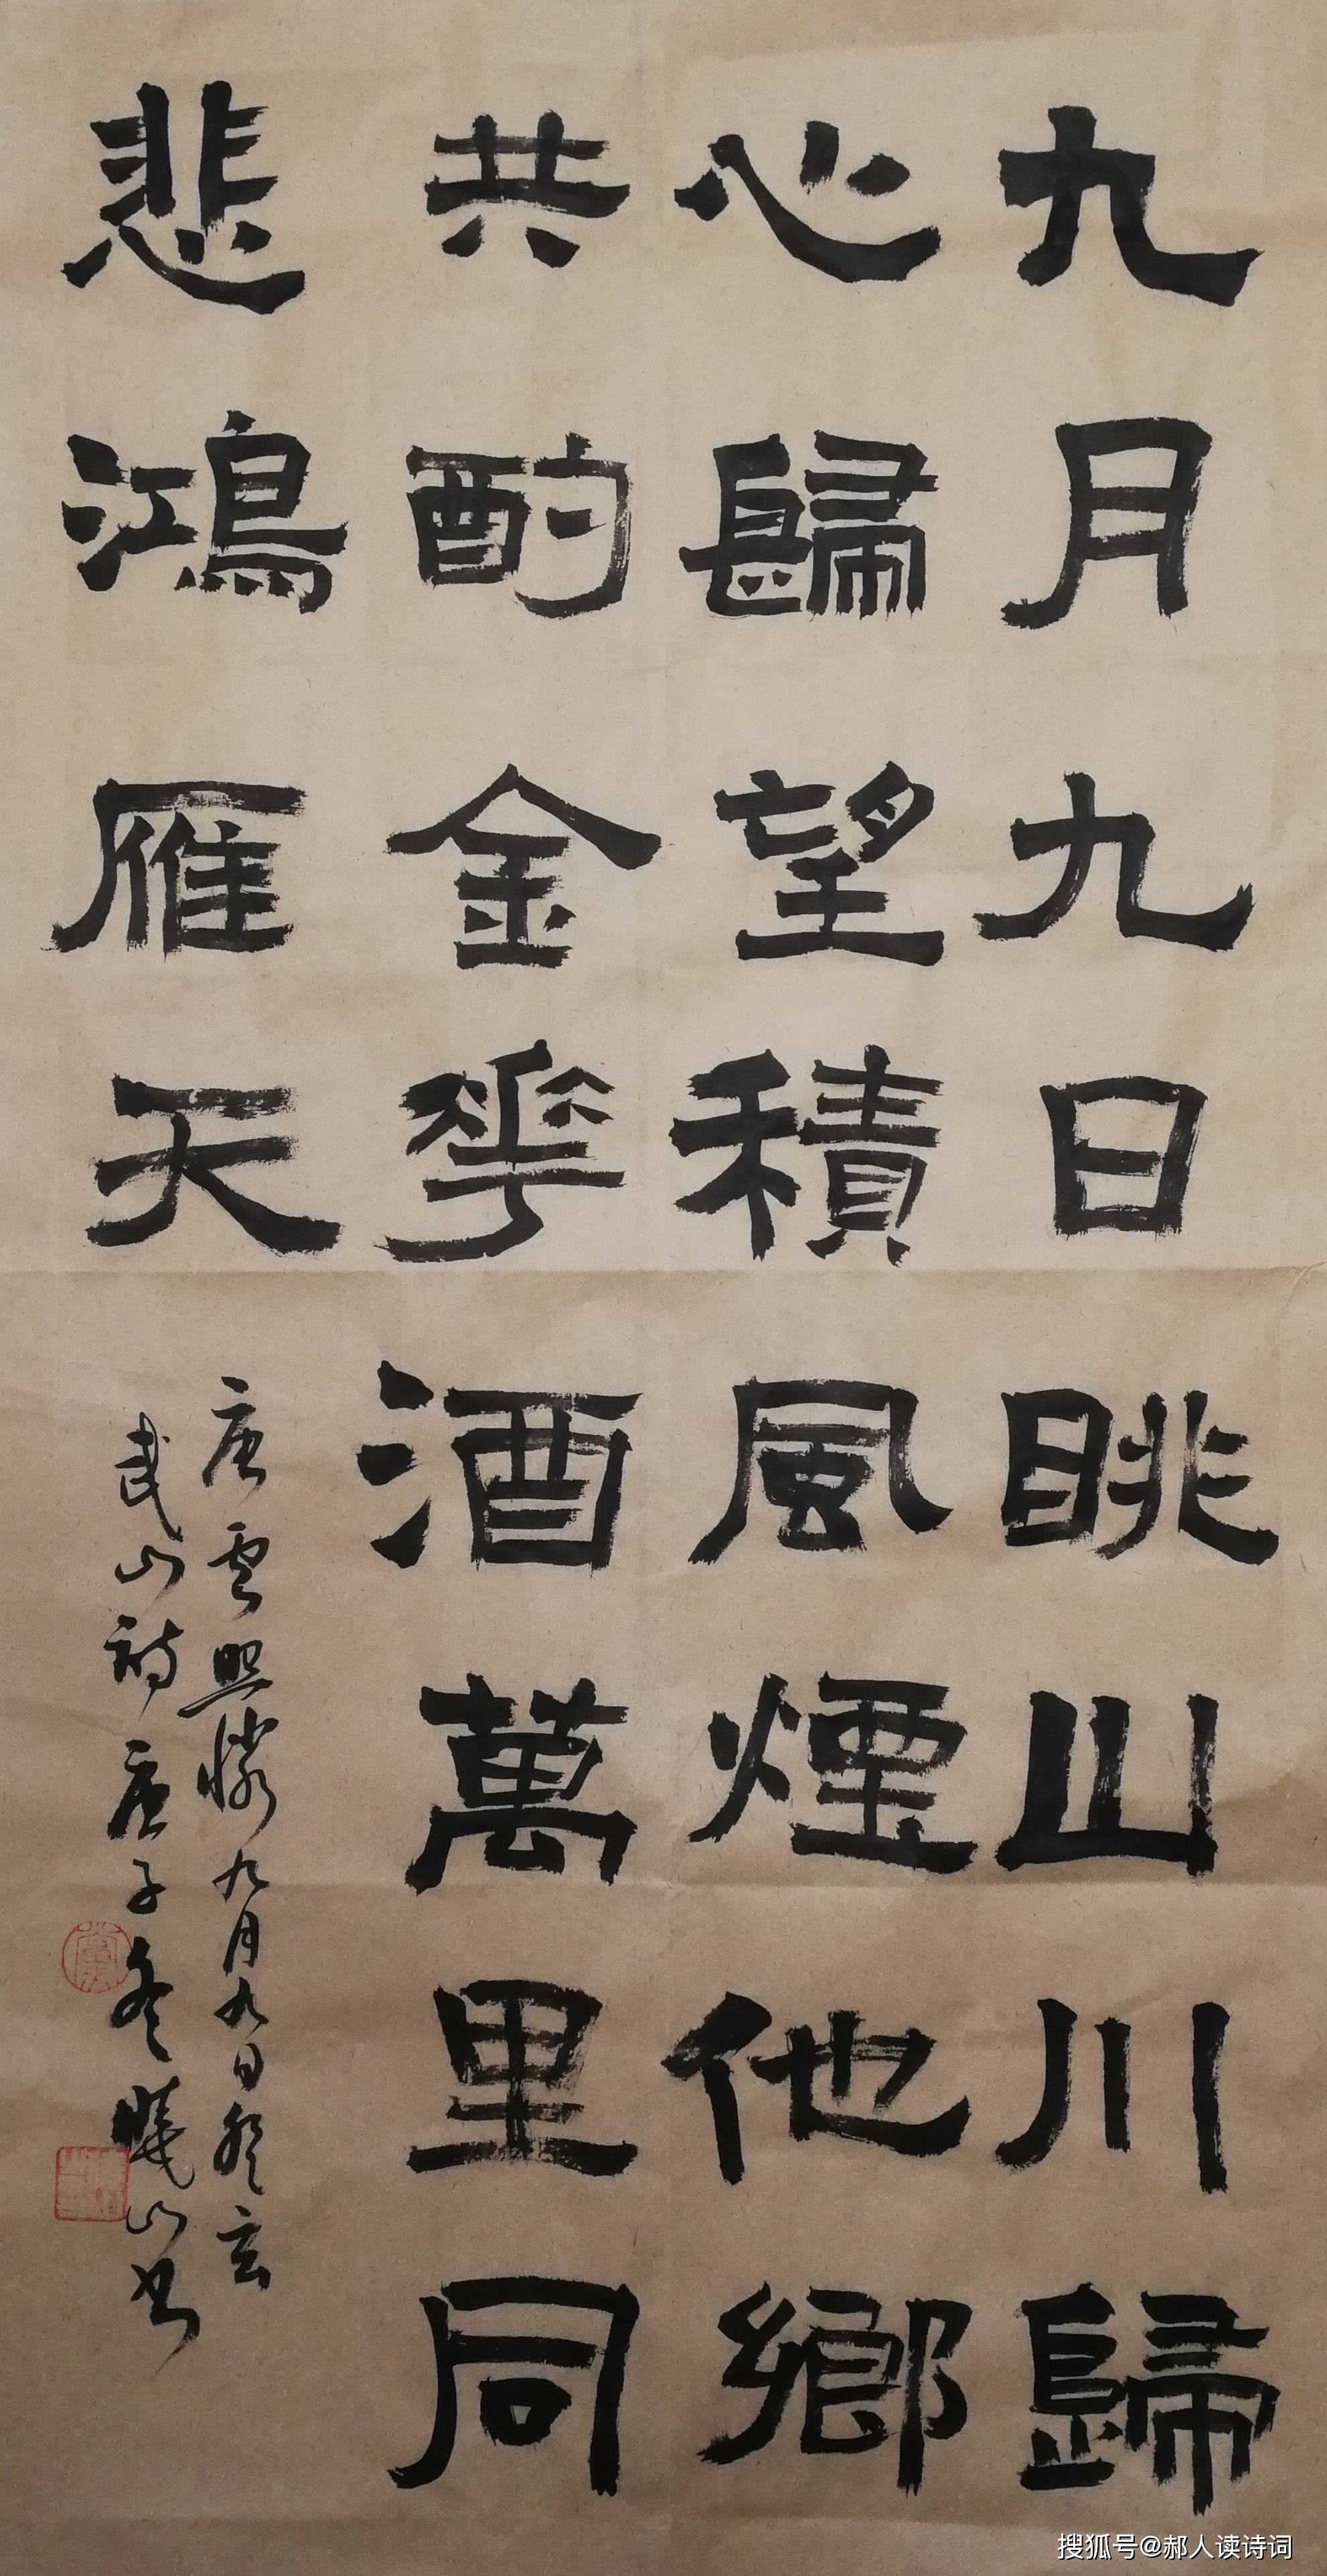 九月九日眺山川歸
心歸望積風煙他鄉
共酌金花酒萬里同
悲鴻雁天
唐盧照鄰九月九日登玄
武山詩庚子冬曉山書
搜狐号@郝人读诗词